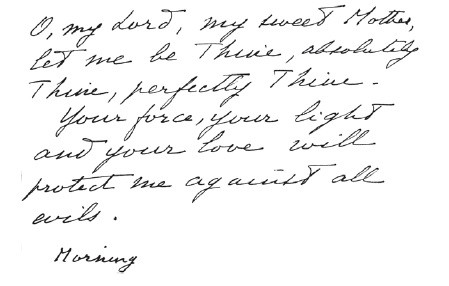 O, my Lord, my sweet Mother,
let me be Thine, absolutely
Thine, perfectly Thine.
Your force, your light
and your love will
protect me against all
evils.
Morning